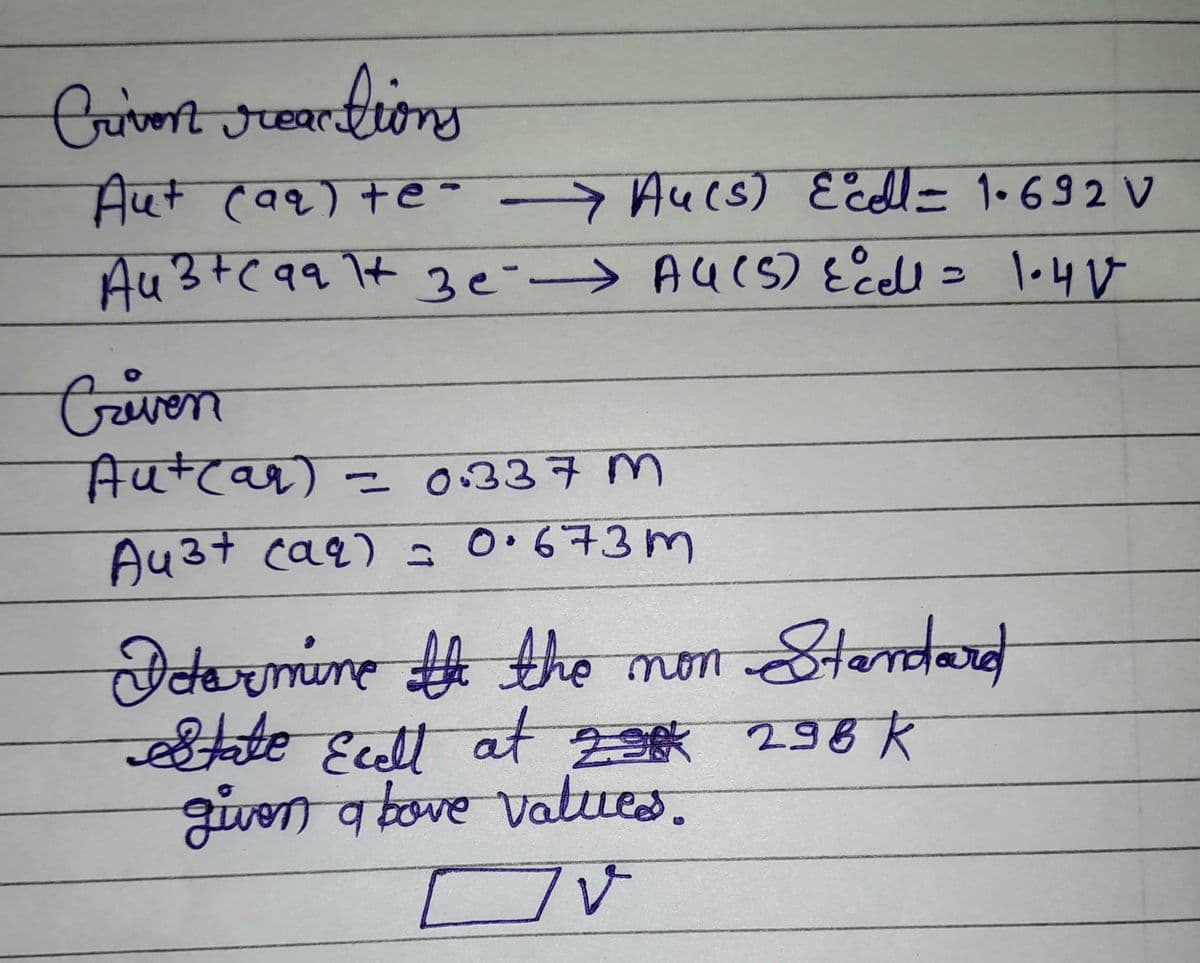 Given reactions
Au+ (aq) + e- → Au(s) E°cell = 1.692 V
Au3+(aq)+ 3e- → Au(s) E°cell = 1.4 V
Given
Au+(aq) = 0.337 M
Au3+ (aq) = 0.673 m
Determine the non Standard
State Ecell at 298 k
given above values.
V